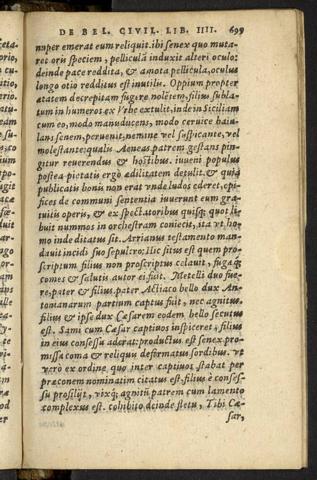 DE BEL. CIVIL. LIB. IIII. 699
nuper emerat eum reliquit. ibi senex quo muta-
ret oris speciem, pelliculã induxit alteri oculo:
deinde pace reddita, & amota pellicula, oculus
longo otio redditus est inutilis. Oppium propter
ætatem decrepitam fugere nolẽtem, filius subla-
tum in humeros ex Vrbe extulit, inde in Siciliam
cum eo, modo manuducens, modo ceruice baiu-
lans senem, peruenit, nemine vel suspicante, vel
molestante: qualis Aeneas patrem gestans fin-
gitur reuerendus & hostibus. iuueni populus
postea pietatis ergò ædilitatem detulit. & quia
publicatis bonis non erat vnde ludos ederet, opi-
fices de communi sententia iuuerunt eum gra-
tuitis operis, & ex spectatoribus quisq; quot li-
buit nummos in orchestram coniecit, ita vt ho-
mo inde ditatus sit. Arrianus testamento man-
dauit incidi suo sepulcro: Hic situs est quem pro-
scriptum filius non proscriptus celauit, fugæq;
comes & salutis autor ei fuit. Metelli duo fue-
re, pater & filius. pater Actiaco bello dux An-
tonianarum partium captus fuit, nec agnitus.
filius & ipse dux Cæsarem eodem bello secutus
est. Sami cum Cæsar captiuos inspiceret, filius
in eius consessu aderat: productus est senex pro-
missa coma & reliquis deformatus sordibus. vt
verò ex ordine quo inter captiuos stabat per
præconem nominatim citatus est, filius è conses-
su prosilijt, vixq; agnitũ patrem cum lamento
complexus est. cohibito deinde fletu, Tibi Cæ-
sar,